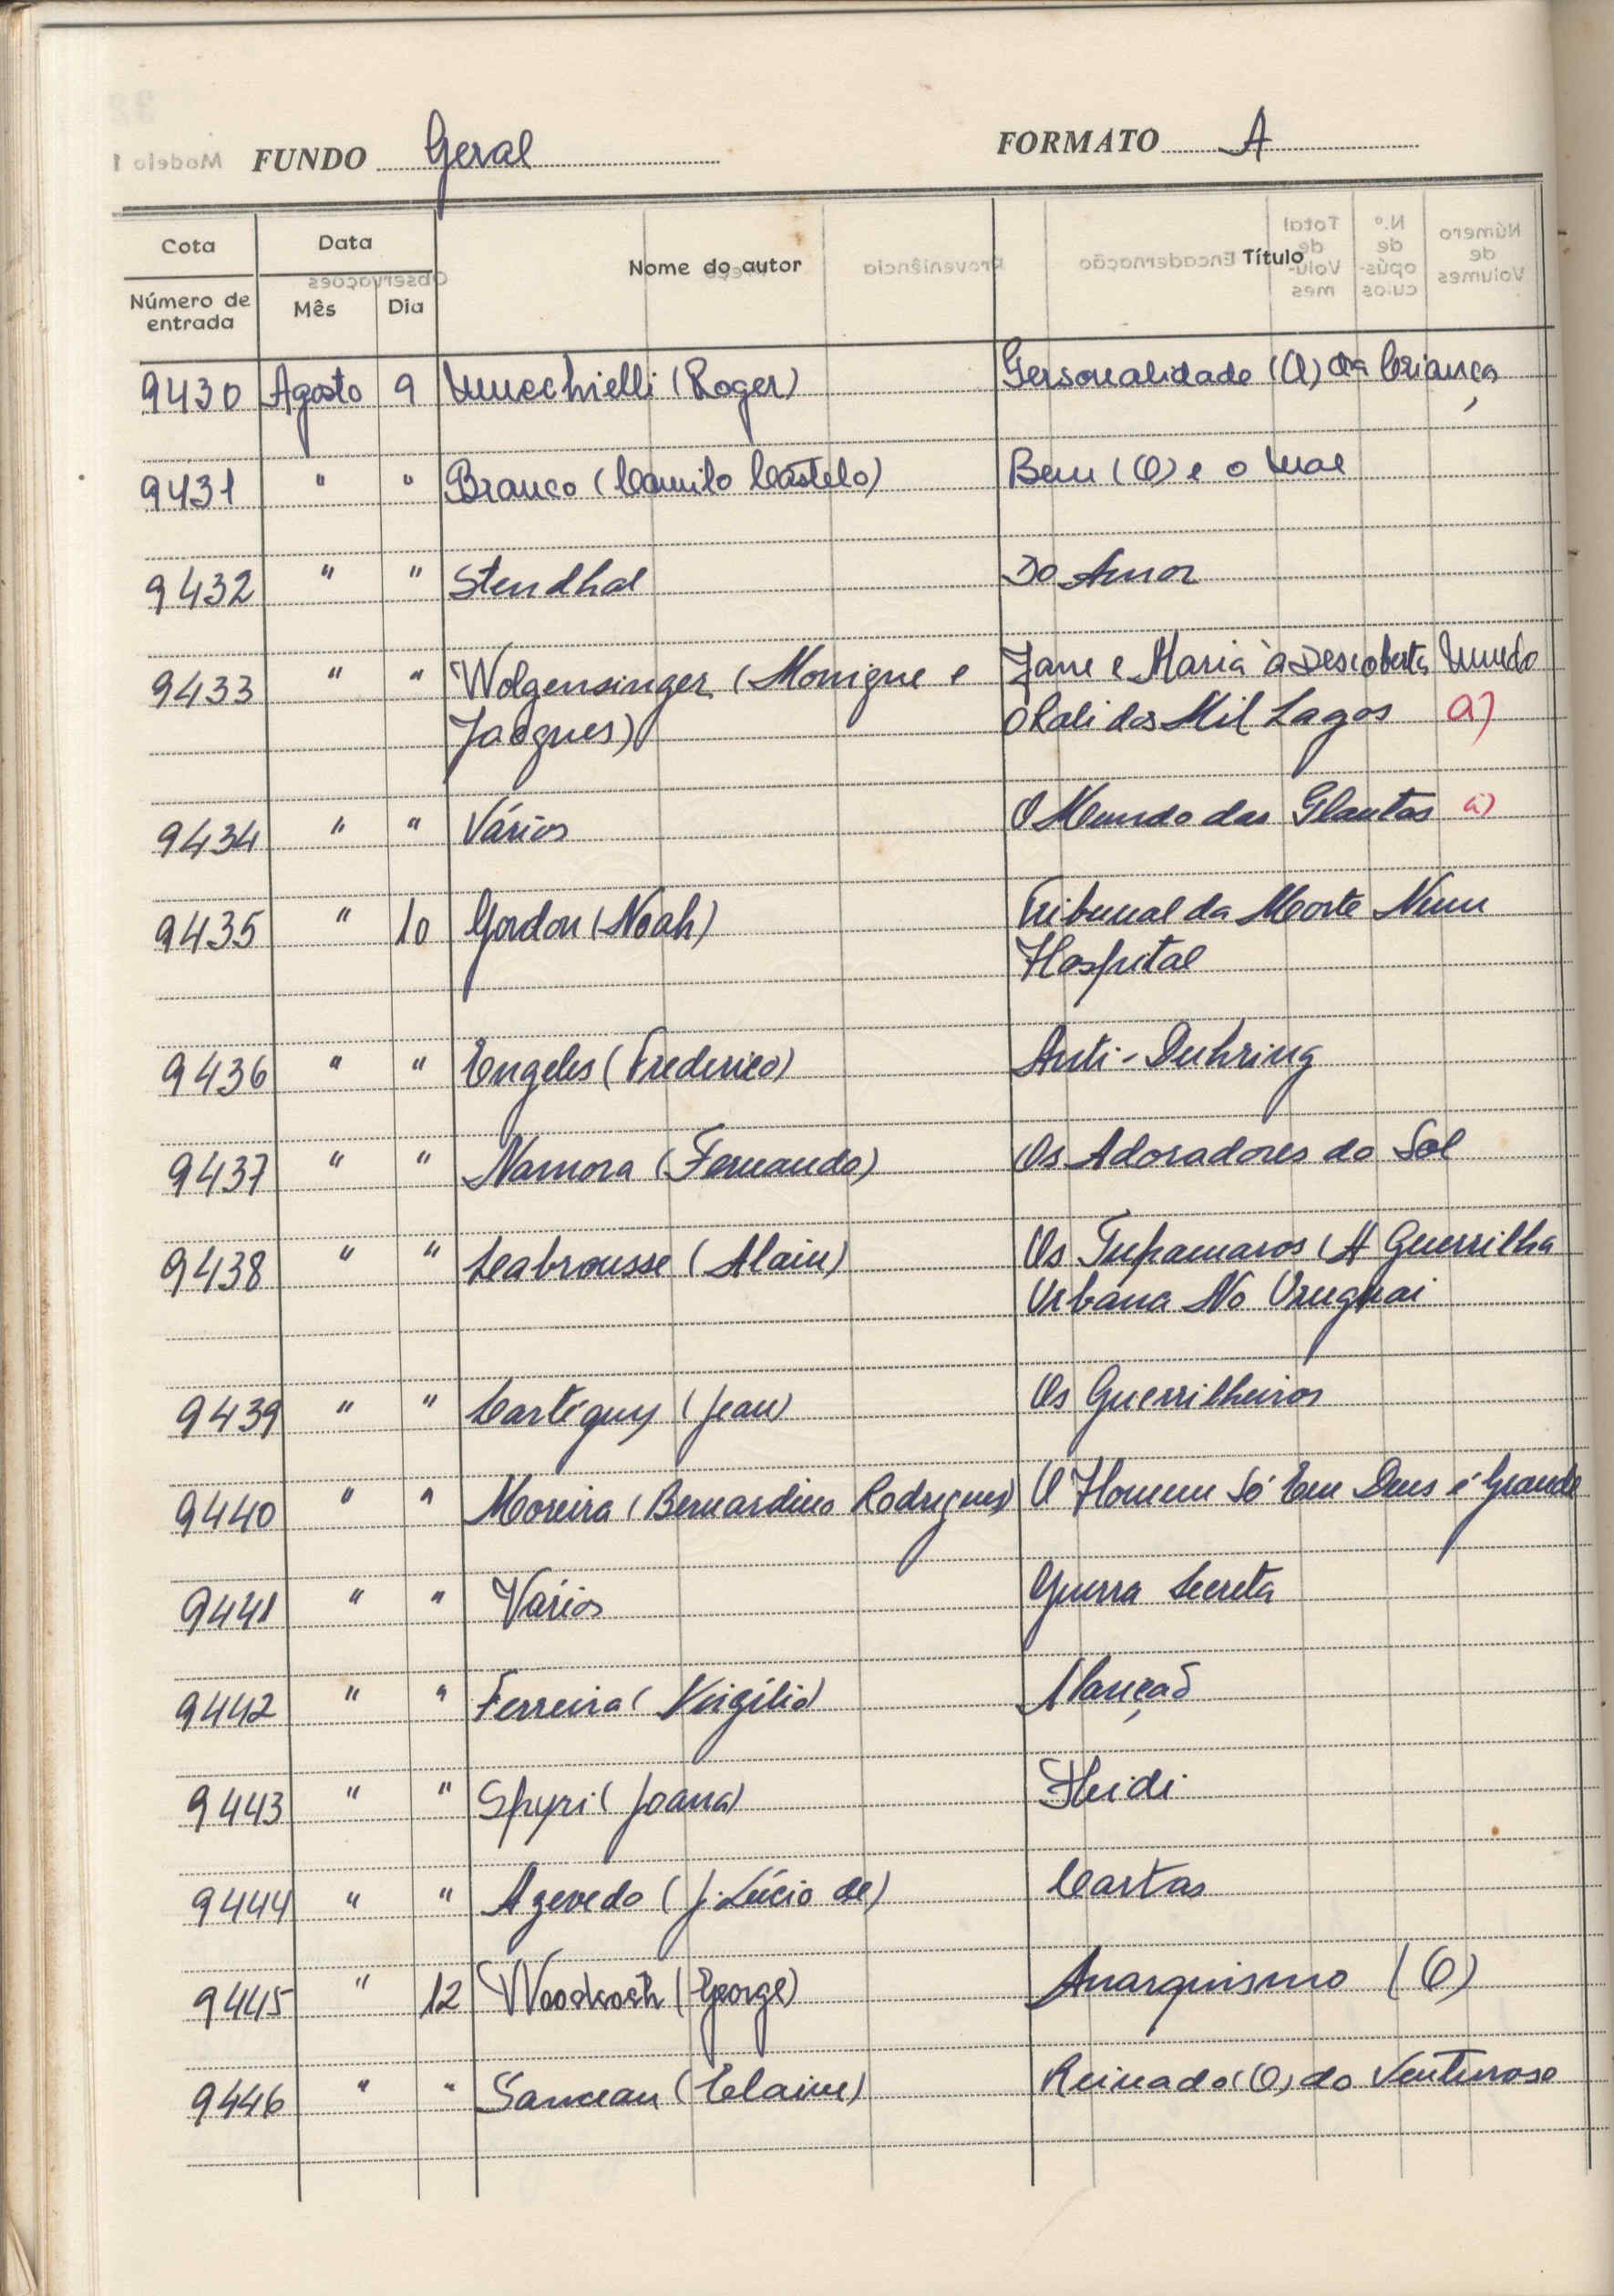 FUNDO Geral FORMATO A
Cota Data Nome do autor Título
Número de entrada Mês Dia
9430 Agosto 9 Mucchielli (Roger) Personalidade (A) da Criança
9431 " " Branco (Camilo Castelo) Bem (O) e o Mal
9432 " " Stendhal Do Amor
9433 " " Wolgensinger (Monique e Jane e Maria à Descoberta Mundo
Jacques) O Rali dos Mil Lagos a)
9434 " " Vários O Mundo das Plantas a)
9435 " 10 Gordon (Noah) Tribunal da Morte Num
Hospital
9436 " " Engeles (Frederico) Anti-Duhring
9437 " " Namora (Fernando) Os Adoradores do Sol
9438 " " Labrousse (Alain) Os Tupamaros (A Guerrilha
Urbana No Uruguai
9439 " " Lartéguy (Jean) Os Guerrilheiros
9440 " " Moreira (Bernardino Rodrigues) O Homem Só Em Deus é Grande
9441 " " Vários Guerra Secreta
9442 " " Ferreira (Virgílio)
9443 " " Spyri (Joana) Heidi
9444 " " Azevedo (J. Lúcio de) Cartas
9445 " 12 (George) Anarquismo (O)
9446 " " Sanceau (Elaine) Reinado (O) do Venturoso